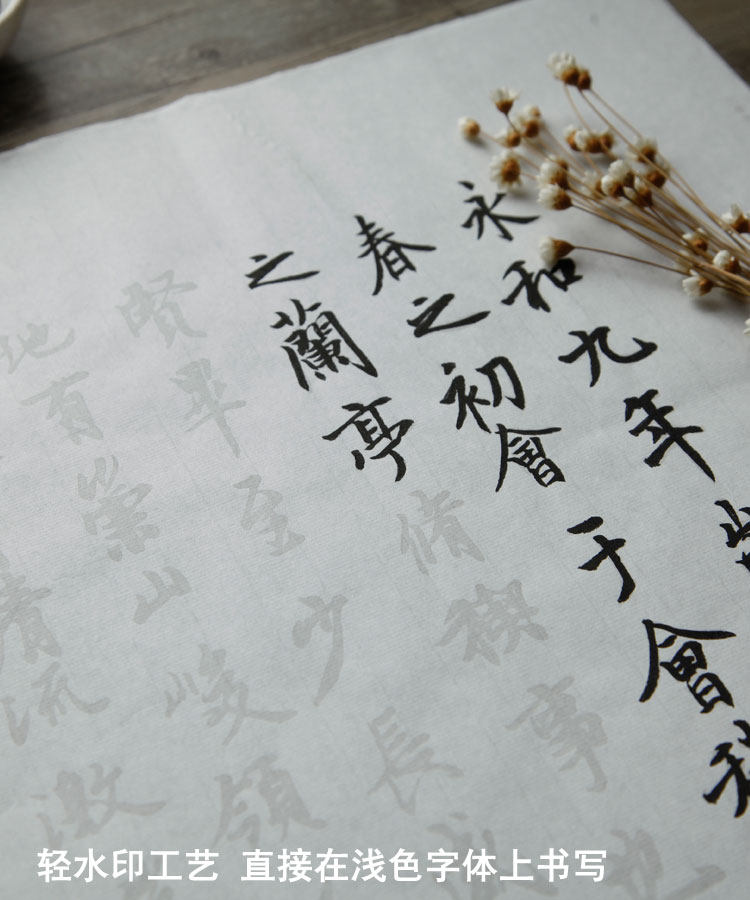 永和九年
春之初會于會
之蘭亭脩稧事也
賢畢至少長咸
地有崇山峻領
清流激
轻水印工艺 直接在浅色字体上书写